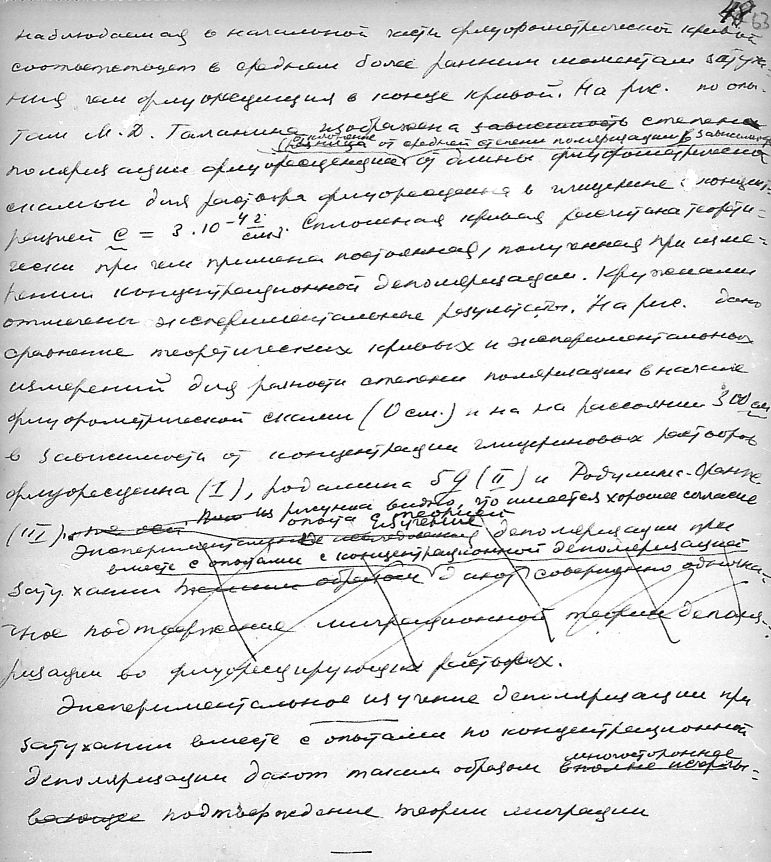 48 63
наблюдаемая в начальной части флуорометрической кривой
соответствует в среднем более ранним моментам затуха-
ния чем флуоресценция в конце кривой. На рис. по опы-
там М.Д. Галанина изображена зависимость степени
отклонение
разница от средней степени поляризации в зависимости
поляризации флуоресценции от длины флуорометрической
скамьи для раствора флуоресцеина в глицерине с концент-
рацией C = 3.10-4 г/см3. Сплошная кривая расчитана теорети-
чески при чем применена постоянная, полученная при изме-
рении концентрационной деполяризации. Кружками
отмечены экспериментальные результаты. На рис. дано
сравнение теоретических кривых и экспериментальных
измерений для разности степени поляризации в начале
флуорометрической скамьи (0 см.) и на на рассоянии 300 см
в зависимости от концентрации глицериновых растворов
флуоресцеина (I), родамина 5G (II) и Родулина-Оранж
(III). Из рисунка видно, что имеется хорошее согласие
опыта с теорией
Экспериментальное изучение деполяризации при
вместе с опытами с концентрационной деполяризацией
затухании таким образом дают совершенно однозна-
чное подтвержение миграционной теории деполя-
ризации во флуоресцирующих растворах.
Экспериментальное изучение деполяризации при
затухании вместе с опытами по концентрационной
многостороннее
деполяризации дают таким образом вполне исчерпы-
вающее подтверждение теории миграции